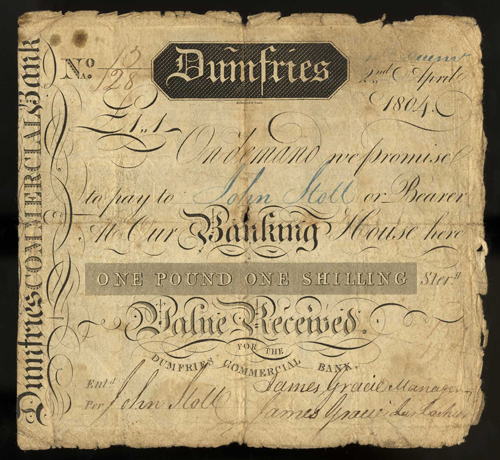 Dumfries COMMERCIAL Bank
No. 13/128
Dumfries
2nd April
1804
£1,,1
On demand we promise
to pay to John Stott or Bearer
At Our Banking House here
ONE POUND ONE SHILLING Sterg
Value Received.
FOR THE
DUMFRIES COMMERCIAL BANK.
Entd James Gracie Manager
Per John Stott James Gracie